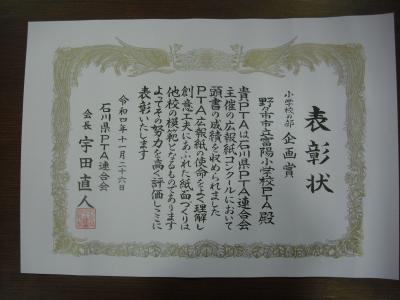 表彰状
小学校の部 企画賞
野々市市立富陽小学校PTA 殿
貴PTAは石川県PTA連合会
主催の広報紙コンクールにおいて
頭書の成績を収められました
PTA広報紙の使命をよく理解し
創意工夫にあふれた紙面づくりは
他校の模範となるものであります
よってその努力を高く評価しここに
表彰いたします
令和四年十一月二十六日
石川県PTA連合会
会長 宇田直人